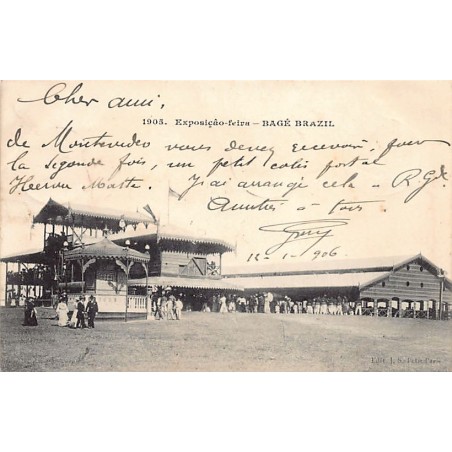 Cher ami,
1905. Exposição-feira — BAGÉ BRAZIL
de Montevideo vous devez recevoir, pour
la segonde fois, un petit colis postal
Herva Matte. J'ai arrangé cela a
Amitiés a tous
12-1-906
Edit. J.